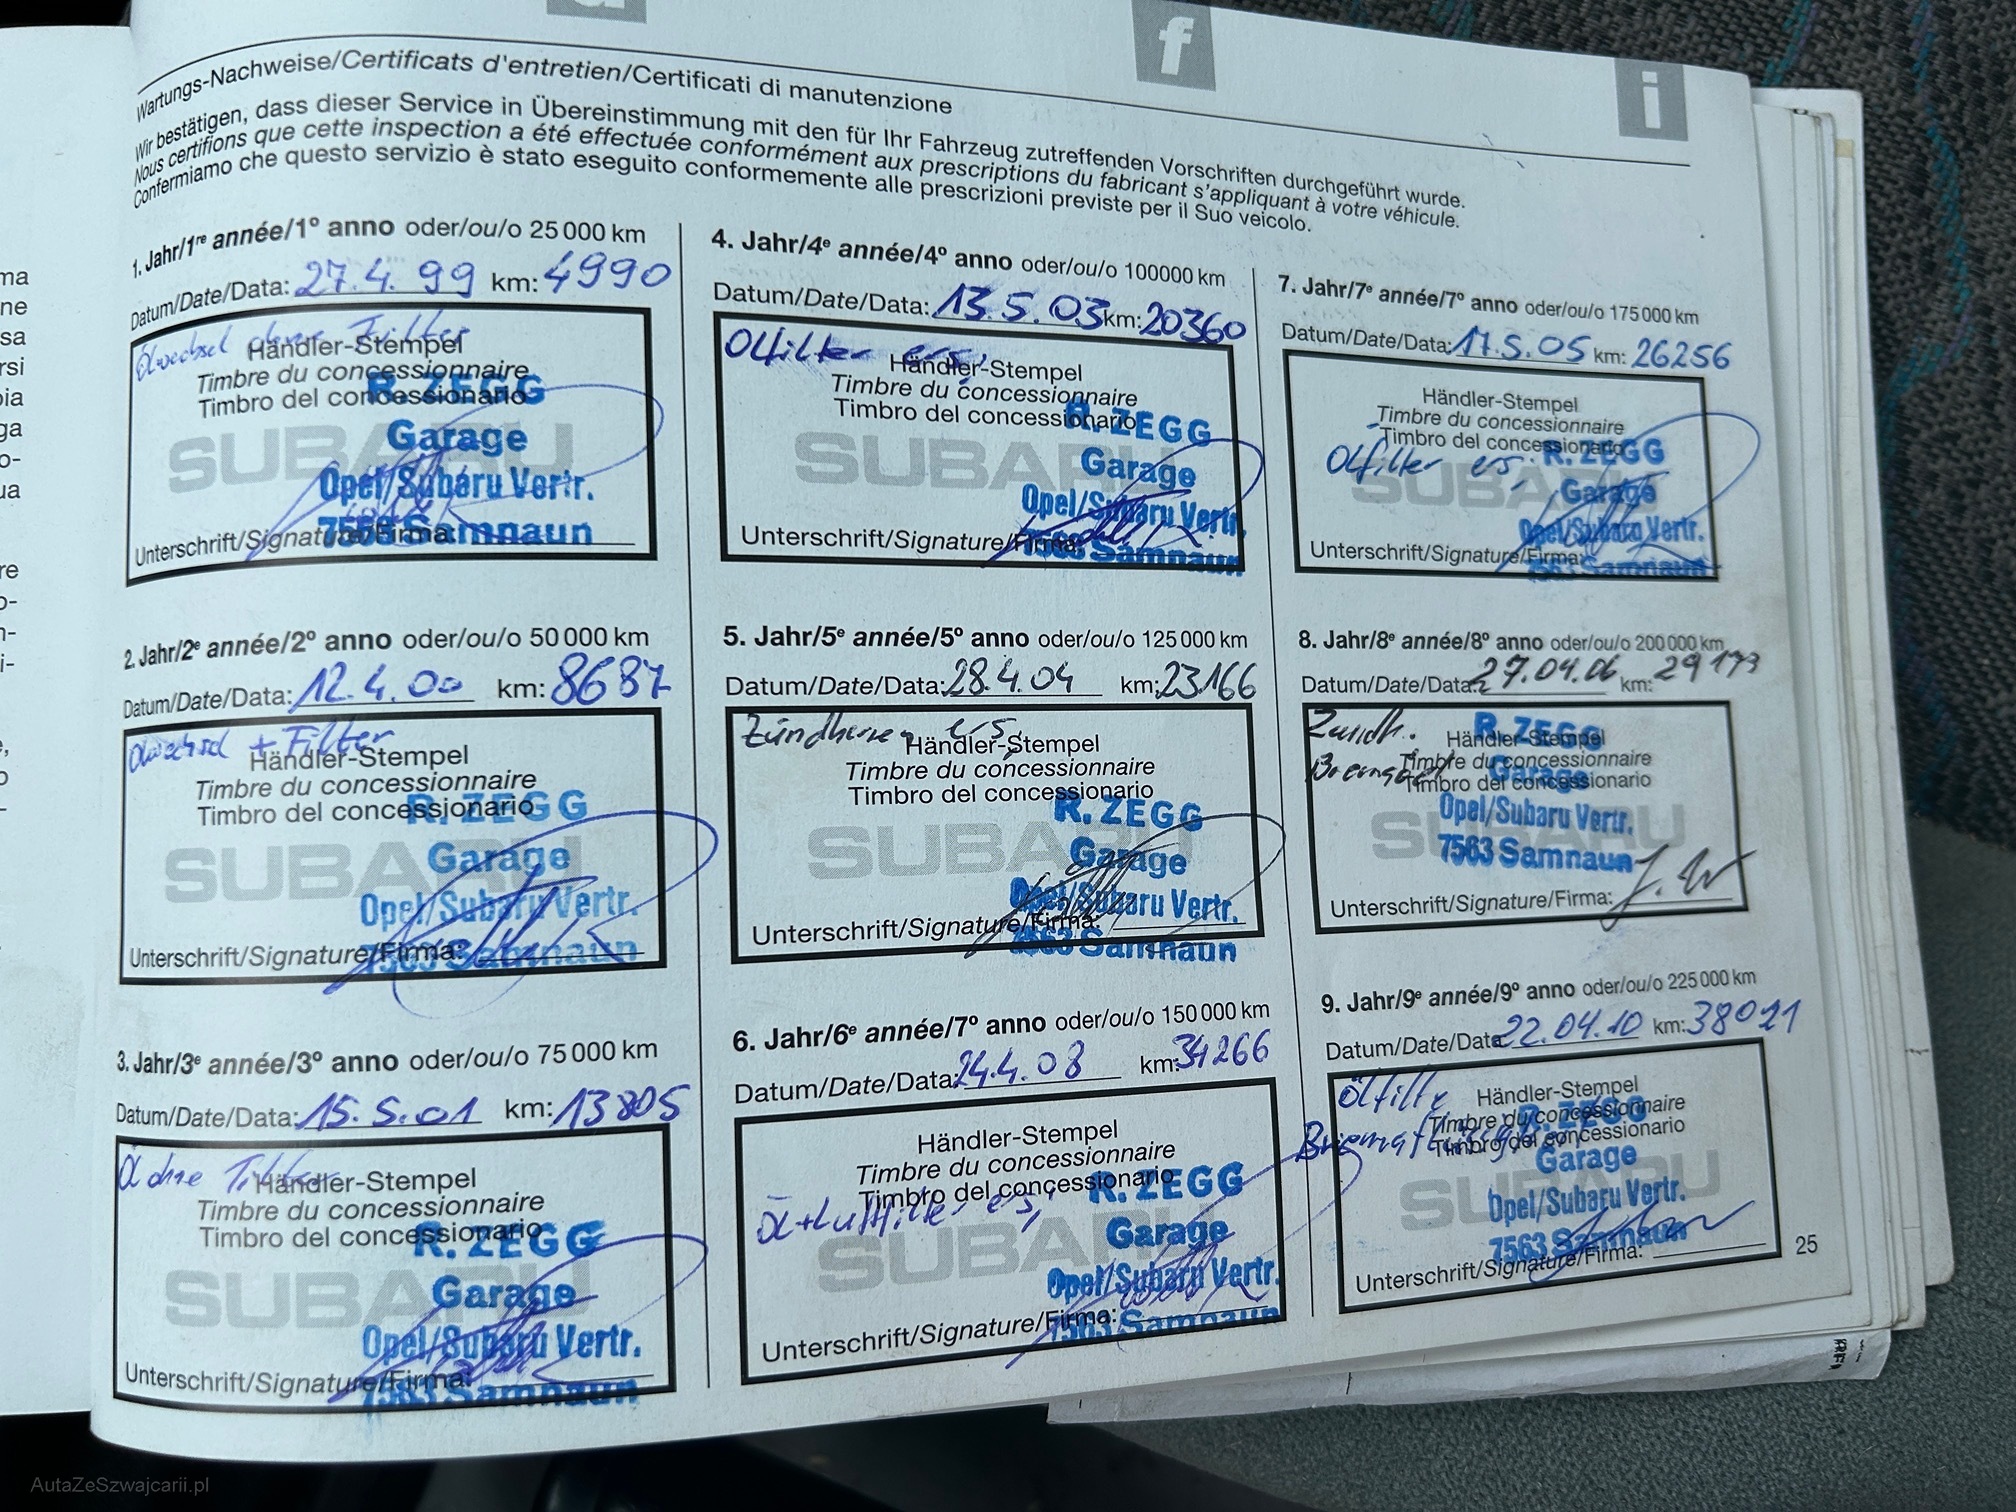 f
i
Wartungs-Nachweise/Certificats d'entretien/Certificati di manutenzione
Wir bestätigen, dass dieser Service in Übereinstimmung mit den für Ihr Fahrzeug zutreffenden Vorschriften durchgeführt wurde.
Nous certifions que cette inspection a été effectuée conformément aux prescriptions du fabricant s'appliquant à votre véhicule.
Confermiamo che questo servizio è stato eseguito conformemente alle prescrizioni previste per il Suo veicolo.
1. Jahr/1re année/1º anno oder/ou/o 25 000 km
Datum/Date/Data: 27.4.99 km: 4990
Ölwechsel ohne Filter
Händler-Stempel
Timbre du concessionnaire
Timbro del concessionario
SUBARU
R. ZEGG
Garage
Opel/Subaru Vertr.
7563 Samnaun
Unterschrift/Signature/Firma:
2. Jahr/2e année/2º anno oder/ou/o 50 000 km
Datum/Date/Data: 12.4.00 km: 8687
Ölwechsel + Filter
Händler-Stempel
Timbre du concessionnaire
Timbro del concessionario
SUBARU
R. ZEGG
Garage
Opel/Subaru Vertr.
7563 Samnaun
Unterschrift/Signature/Firma:
3. Jahr/3e année/3º anno oder/ou/o 75 000 km
Datum/Date/Data: 15.5.01 km: 13805
Öl ohne Filter
Händler-Stempel
Timbre du concessionnaire
Timbro del concessionario
SUBARU
R. ZEGG
Garage
Opel/Subaru Vertr.
7563 Samnaun
Unterschrift/Signature/Firma:
4. Jahr/4e année/4º anno oder/ou/o 100000 km
Datum/Date/Data: 13.5.03 km: 20360
Ölfilter ers.
Händler-Stempel
Timbre du concessionnaire
Timbro del concessionario
SUBARU
R. ZEGG
Garage
Opel/Subaru Vertr.
7563 Samnaun
Unterschrift/Signature/Firma:
5. Jahr/5e année/5º anno oder/ou/o 125 000 km
Datum/Date/Data: 28.4.04 km: 23166
Zündkerzen ers,
Händler-Stempel
Timbre du concessionnaire
Timbro del concessionario
SUBARU
R. ZEGG
Garage
Opel/Subaru Vertr.
7563 Samnaun
Unterschrift/Signature/Firma:
6. Jahr/6e année/7º anno oder/ou/o 150 000 km
Datum/Date/Data: 24.4.08 km: 34266
Händler-Stempel
Timbre du concessionnaire
Timbro del concessionario
Öl+Luftfilter ers,
SUBARU
R. ZEGG
Garage
Opel/Subaru Vertr.
7563 Samnaun
Unterschrift/Signature/Firma:
7. Jahr/7e année/7º anno oder/ou/o 175 000 km
Datum/Date/Data: 17.5.05 km: 26256
Händler-Stempel
Timbre du concessionnaire
Timbro del concessionario
Ölfilter ers.
SUBARU
R. ZEGG
Garage
Opel/Subaru Vertr.
7563 Samnaun
Unterschrift/Signature/Firma:
8. Jahr/8e année/8º anno oder/ou/o 200 000 km
Datum/Date/Data: 27.04.06 km: 29173
Zündk.
Händler-Stempel
Timbre du concessionnaire
Timbro del concessionario
SUBARU
R. ZEGG
Garage
Opel/Subaru Vertr.
7563 Samnaun
Unterschrift/Signature/Firma:
9. Jahr/9e année/9º anno oder/ou/o 225 000 km
Datum/Date/Data: 22.04.10 km: 38021
Ölfilter
Händler-Stempel
Timbre du concessionnaire
Timbro del concessionario
SUBARU
R. ZEGG
Garage
Opel/Subaru Vertr.
7563 Samnaun
Unterschrift/Signature/Firma:
25
AutaZeSzwajcarii.pl